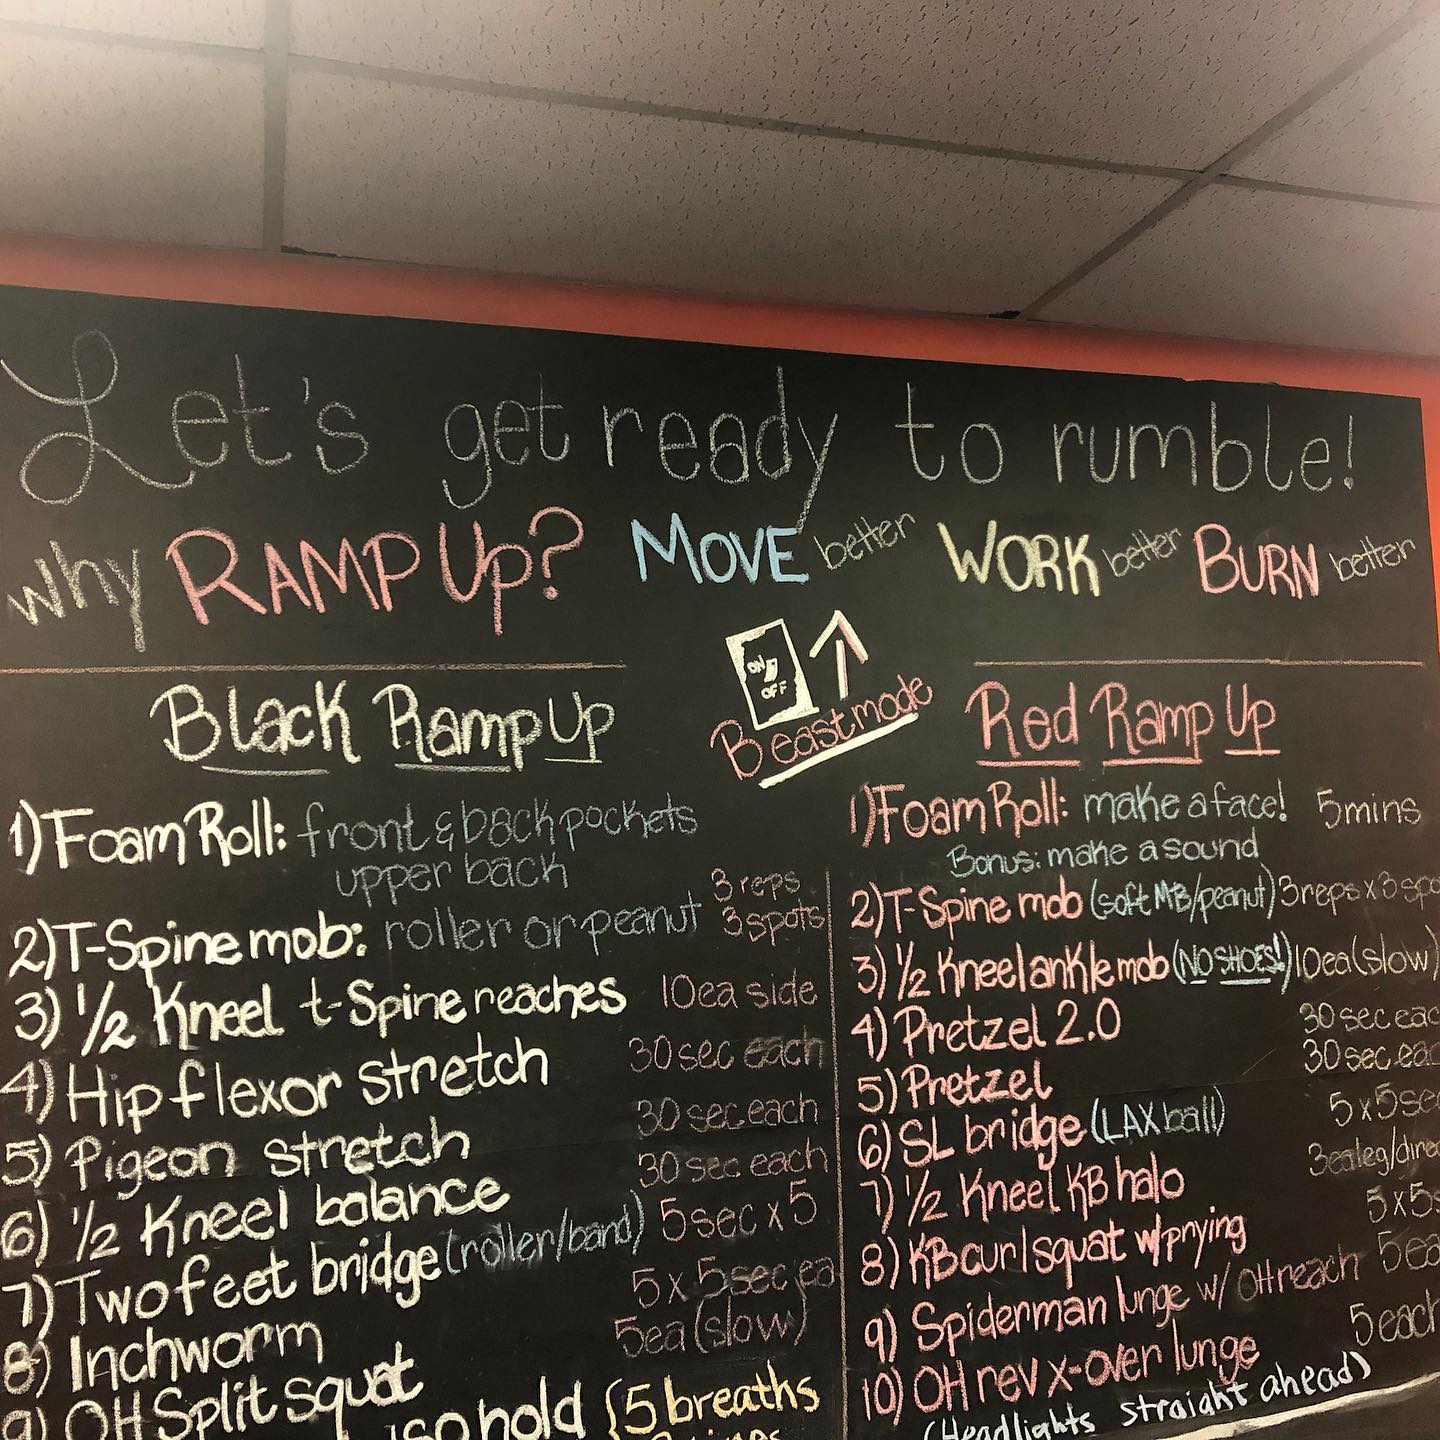 Let's get ready to rumble!
why RAMP Up? MOVE better WORK better BURN better
ON
OFF
Beastmode
Black Ramp Up
1) Foam Roll: front & back pockets
upper back
2) T-Spine mob: roller or peanut 3 reps
3 spots
3) 1/2 Kneel t-Spine reaches 10ea side
4) Hip flexor stretch 30 sec each
5) Pigeon stretch 30 sec each
6) 1/2 Kneel balance 30 sec each
7) Two feet bridge (roller/band) 5 sec x 5
8) Inchworm 5 x 5 sec ea
9) OH Split squat 5ea (slow)
iso hold {5 breaths
Red Ramp Up
1) Foam Roll: make a face! 5 mins
Bonus: make a sound
2) T-Spine mob (soft MB/peanut) 3 reps x 3 spo
3) 1/2 Kneel ankle mob (NO SHOES!) 10ea (slow)
4) Pretzel 2.0 30 sec eac
5) Pretzel 30 sec eac
6) SL bridge (LAX ball) 5 x 5 sec
7) 1/2 Kneel KB halo 3ea leg/direc
8) KB curl squat w/ prying 5 x 5s
9) Spiderman lunge w/ OH reach 5 ea
10) OH rev x-over lunge 5 each
(Headlights straight ahead)